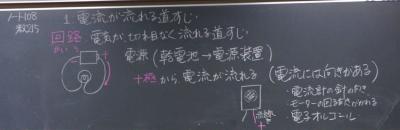 ノート108
教215
1. 電流が流れる道すじ.
回路 電気が、切れ目なく流れる道すじ
かいろ
電源(乾電池→電源装置)
+極から電流が流れる(電流には向きがある)
・電流計の針の向き
・モーターの回る向きがかわる
・電子オルゴール
+
+